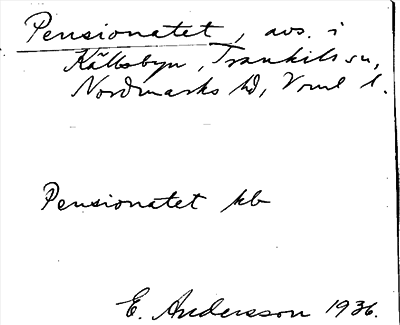 Pensionatet, avs. i
Källsbyn, Trankils sn,
Nordmarks hd, Vrml l.
Pensionatet kb
E. Andersson 1936.